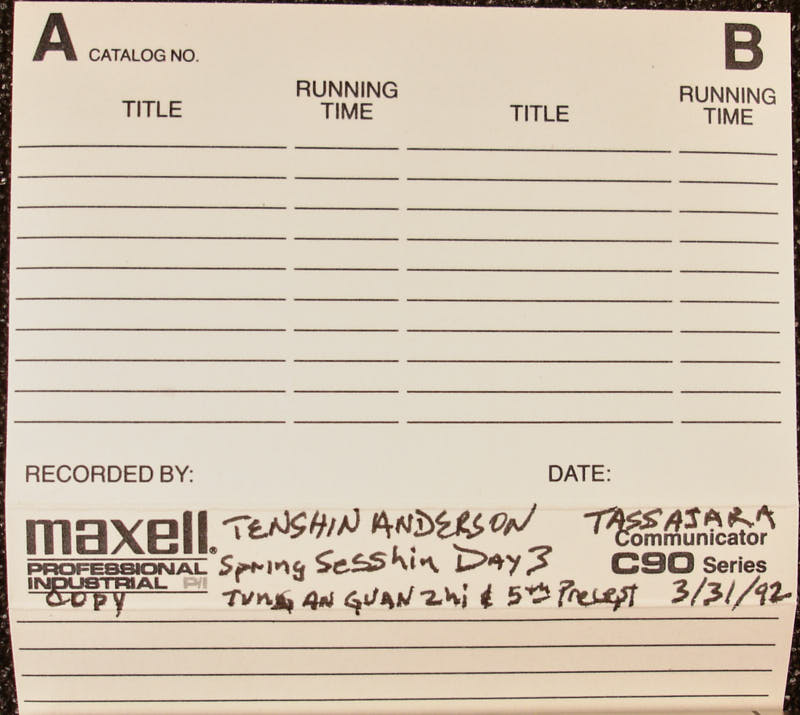 A CATALOG NO. B
TITLE RUNNING TIME TITLE RUNNING TIME
RECORDED BY: DATE:
maxell® TENSHIN ANDERSON TASSAJARA
Communicator
PROFESSIONAL Spring Sesshin DAY 3 C90 Series
INDUSTRIAL P/I
COPY TUNG AN GUAN Zhi & 5th Precept 3/31/92